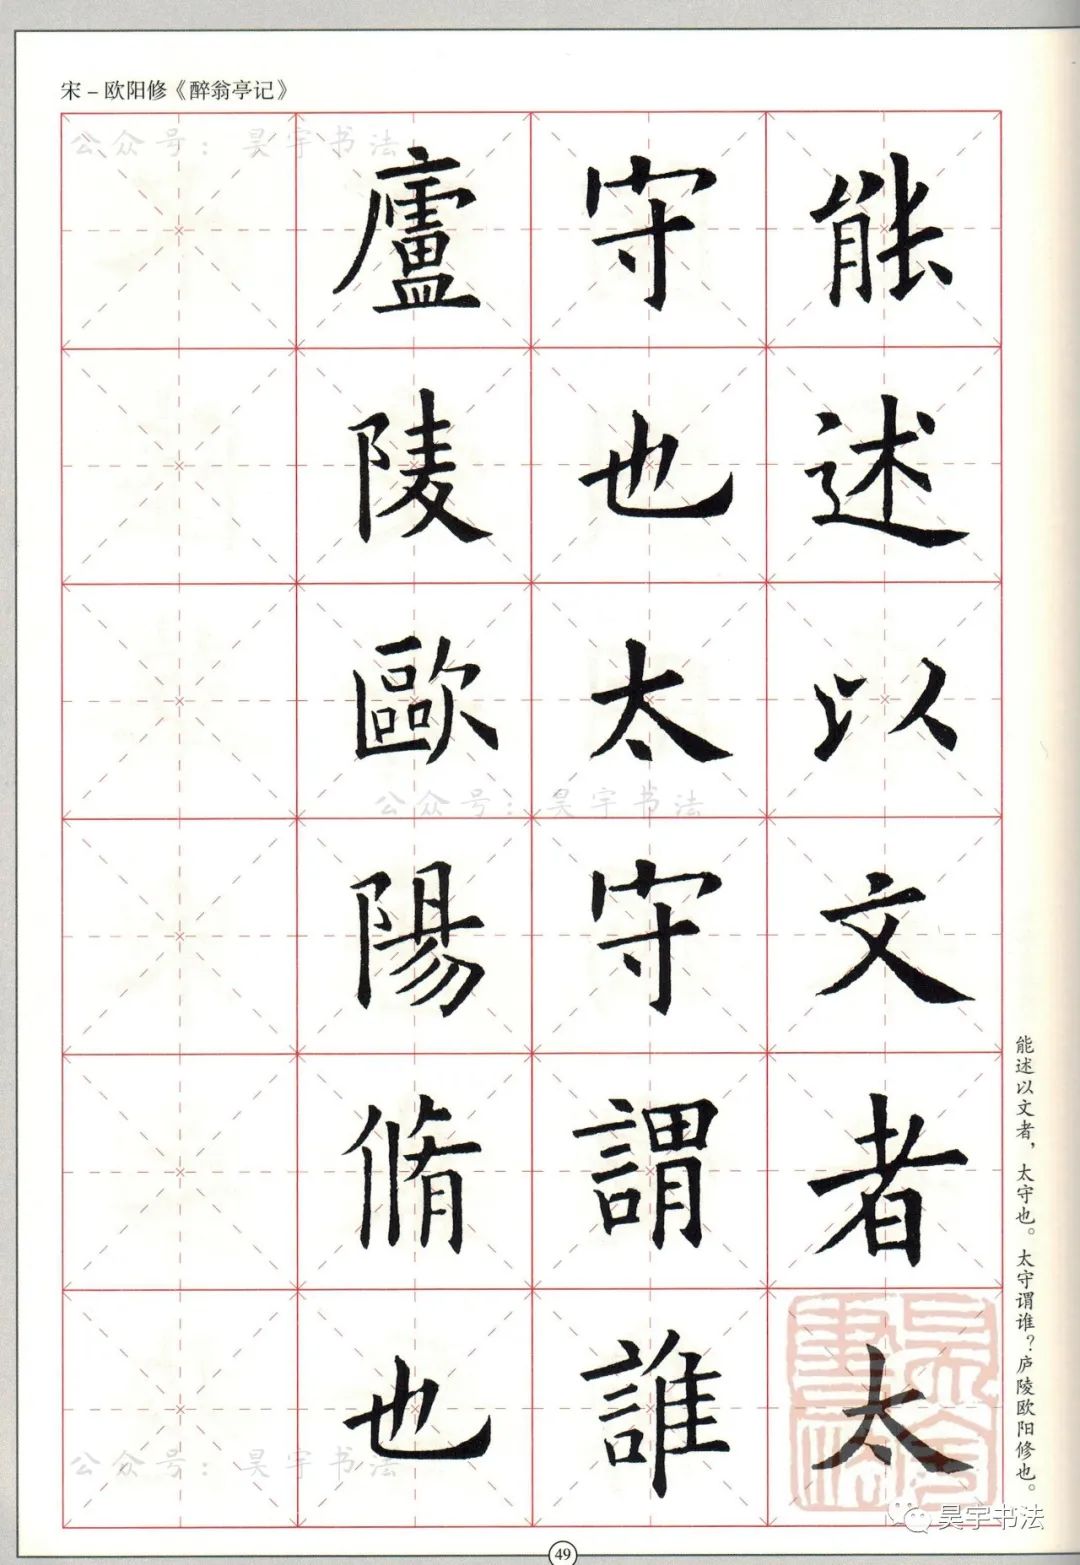 宋－欧阳修《醉翁亭记》
公众号：昊宇书法
能述以文者太
守也太守謂誰
廬陵歐陽脩也
能述以文者，太守也。太守谓谁？庐陵欧阳修也。
公众号：昊宇书法
公众号：昊宇书法
昊宇書法
昊宇书法
49